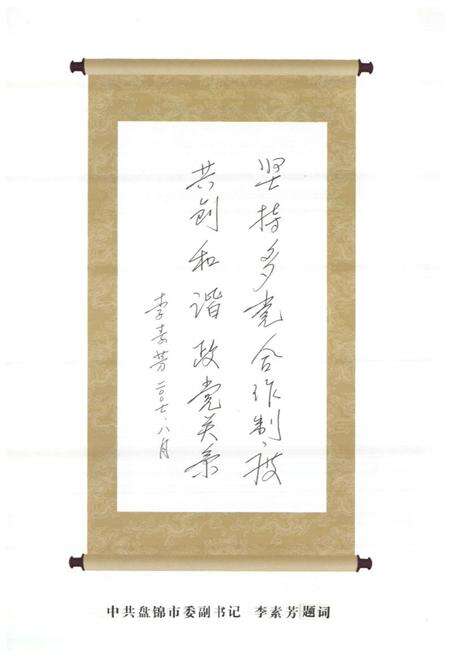 坚持多党合作制度
共创和谐政党关系
李素芳二〇〇七.八月
中共盘锦市委副书记 李素芳题词